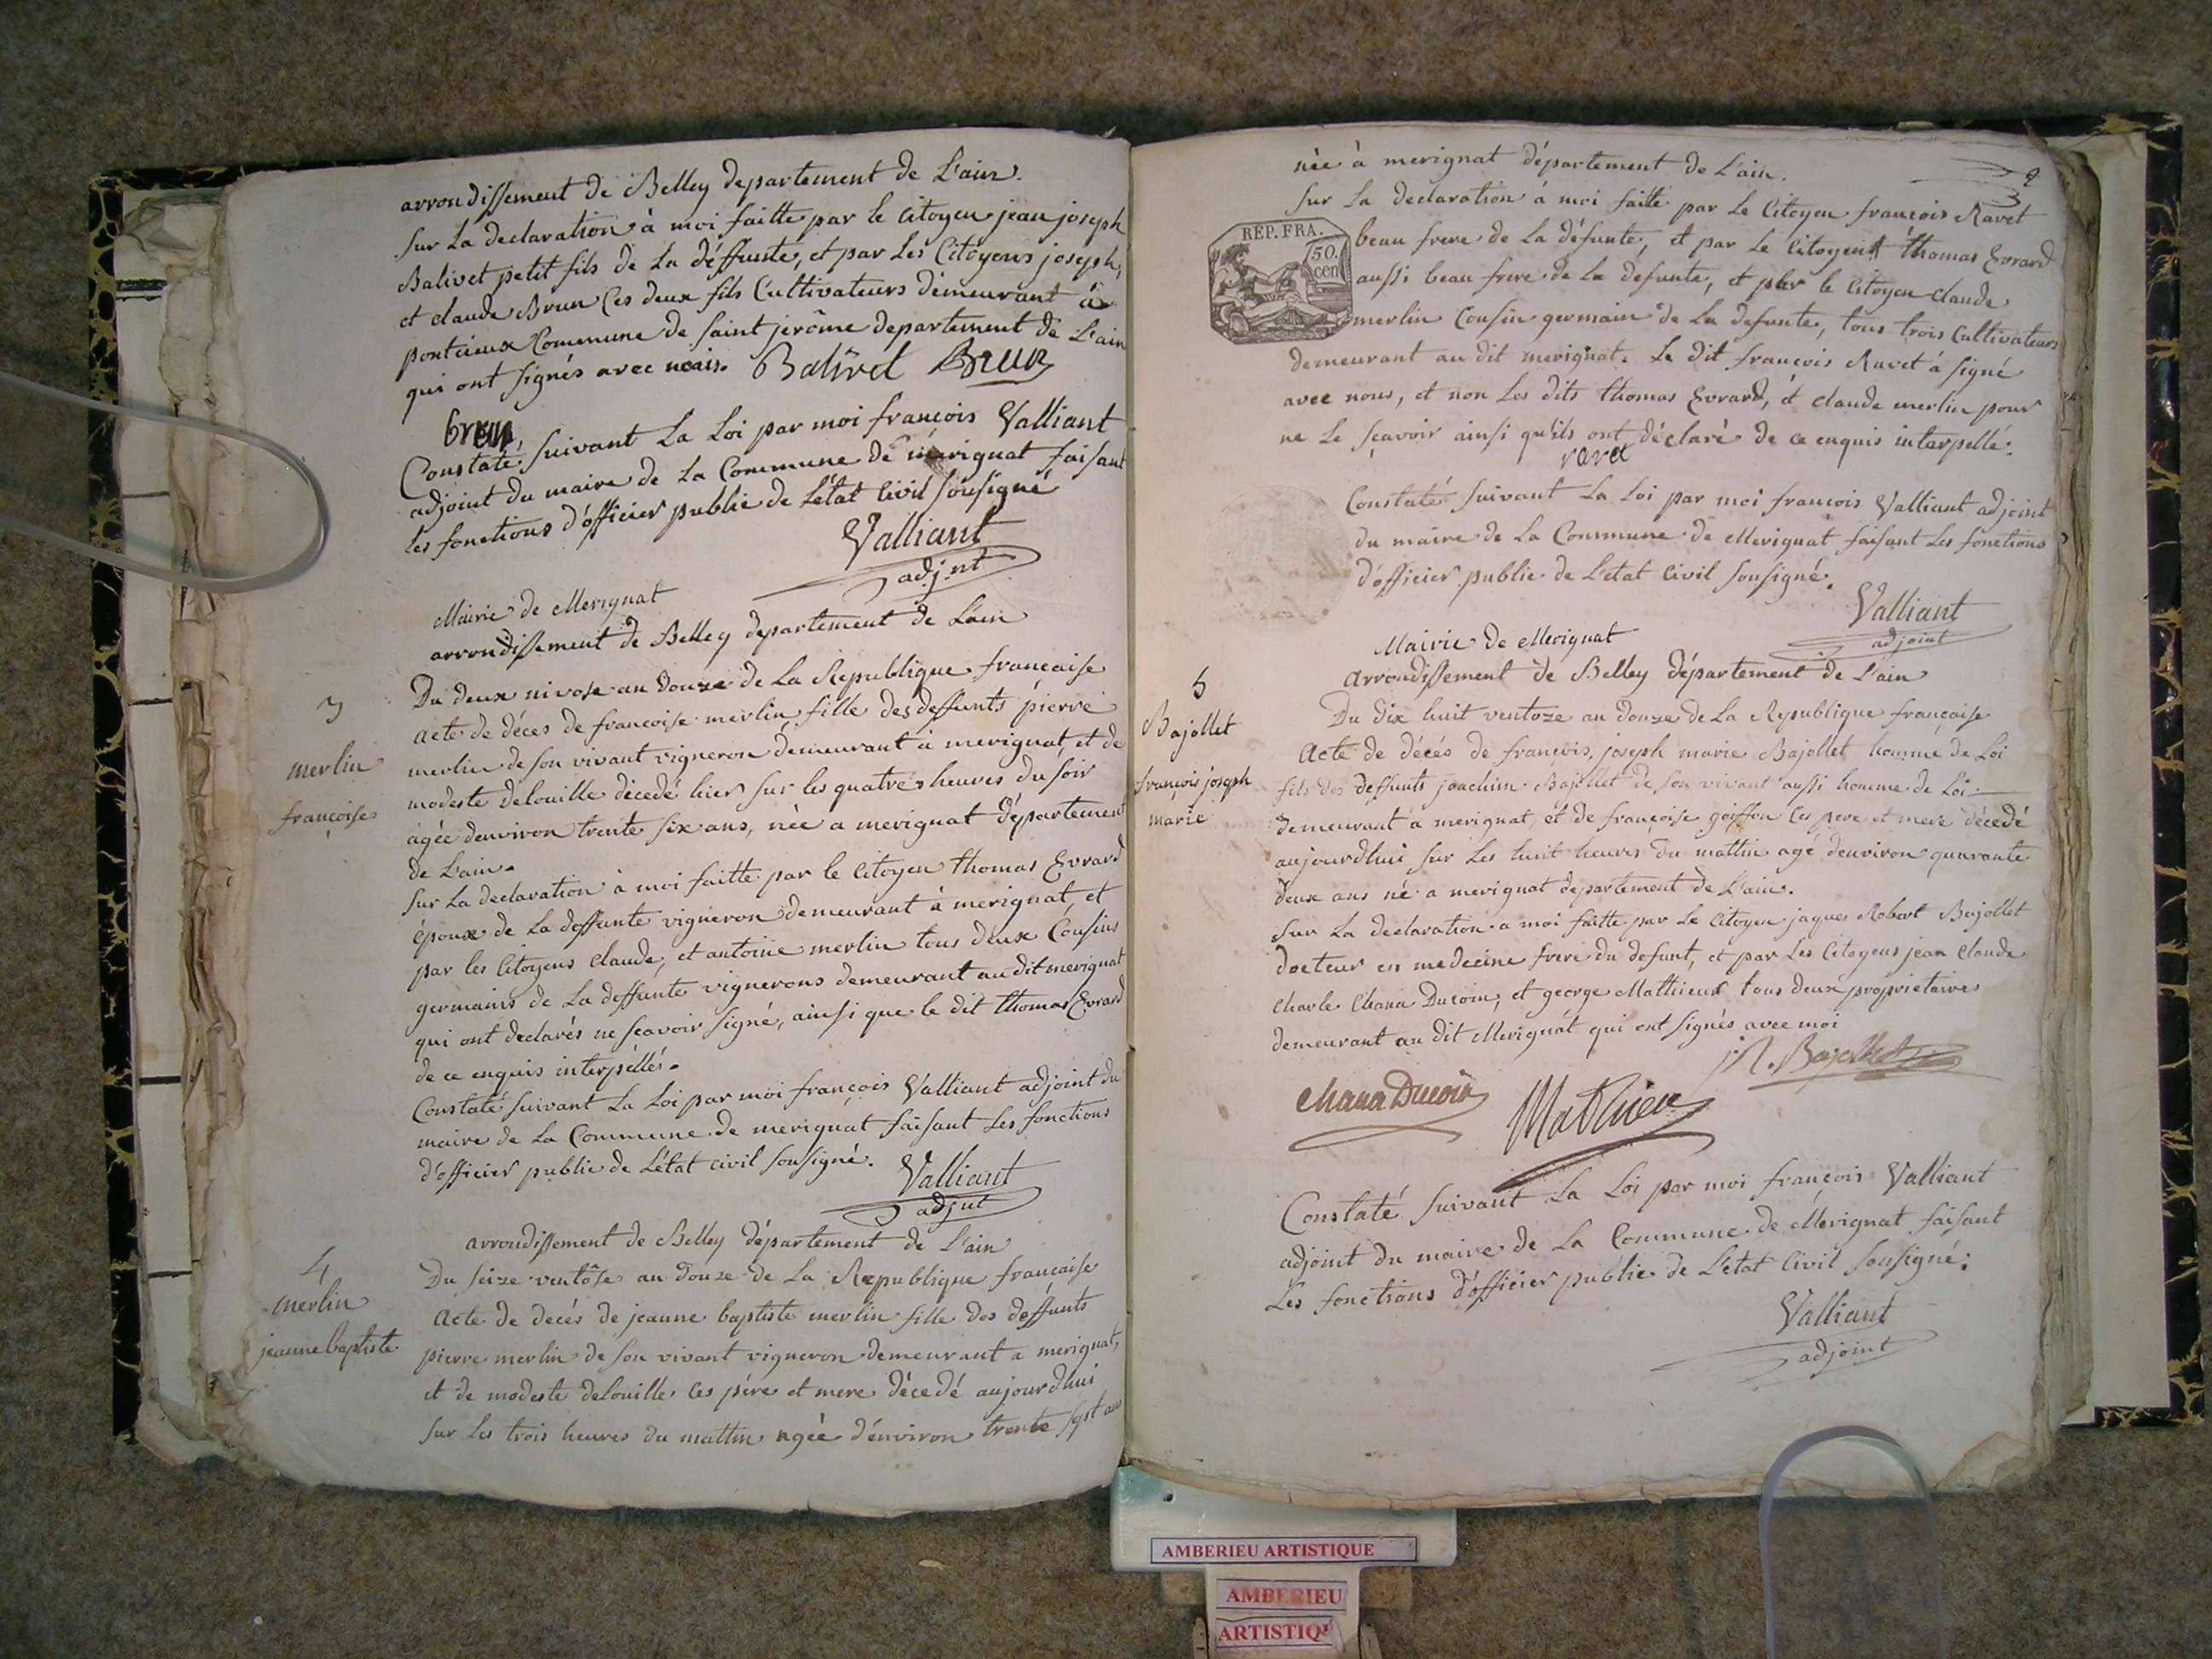 arrondissement de Belley departement de L'ain.
sur La declaration à moi faitte par le Citoyen jean joseph
Balivet petit fils de La déffunte, et par Les Citoyens joseph,
et claude Brun Ces deux fils Cultivateurs demeurant à
pontcieux Commune de saint jerôme departement de L'ain
qui ont signés avec nous. Balivet Brun
brun
Constaté, suivant La Loi par moi françois Valliant
adjoint du maire de La Commune de merignat faisant
les fonctions d'officier public de L'état Civil sousigné
Valliant
adjnt
Mairie de Merignat
arrondissement de Belley departement de Lain
3
merlin
françoise
Du deux nivose an douze de La Republique française
acte de déces de françoise merlin fille des deffunts pierre
merlin de son vivant vigneron demeurant à merignat, et de
modeste delouille décedé hier sur les quatres heures du soir
agée denviron trente six ans, née a merignat département
de L'ain.
sur La declaration à moi faitte par le Citoyen thomas Evrard
époux de La deffunte vigneron demeurant à merignat, et
par les Citoyens Claude, et antoine merlin tous deux Cousins
germains de La deffunte vignerons demeurant au dit merignat
qui ont declarés ne sçavoir signé, ainsi que le dit thomas Evrard
de ce enquis interpéllés.
Constaté suivant La Loi par moi françois Valliant adjoint du
maire de La Commune de merignat faisant Les fonctions
d'officier public de L'état civil sousigné.
Valliant
adjnt
arrondissement de Belley département de L'ain
4
merlin
jeanne baptiste
Du seize ventôse an douze de La Republique française
Acte de decés de jeanne baptiste merlin fille des deffunts
pierre merlin de son vivant vigneron demeurant a merignat,
et de modeste delouille Ces pére et mere décedé aujourdhui
sur Les trois heures du mattin agée d'énviron trente sept ans
née à merignat département de L'ain.
3
sur La declaration à moi faitte par Le Citoyen françois Ravet
REP. FRA.
50.
cen
beau frere de La défunte, et par Le Citoyen thomas Evrard
aussi beau frere de La defunte, et par le Citoyen claude
merlin Cousin germain de La defunte, tous trois Cultivateurs
demeurant au dit merignat. Le dit françois Ravet à signé
avec nous, et non Les dits thomas Evrard, et claude merlin pour
ne Le sçavoir ainsi qu'ils ont déclaré de ce enquis interpellé.
ravet
Constaté suivant La Loi par moi françois Valliant adjoint
du maire de La Commune de Merignat faisant Les fonctions
d'officier public de L'état Civil sousigné.
Valliant
adjoint
Mairie de Merignat
arrondissement de Belley département de L'ain
5
Bajollet
françois joseph
marie
Du dix huit ventoze an douze de La Republique française
Acte de décés de françois, joseph marie Bajollet homme de Loi
fils des deffunts joachim Bajollet de son vivant aussi homme de Loi
demeurant à merignat, et de françoise goiffon Ces pere et mere décedé
aujourdhui sur Les huit heures du mattin agé denviron quarante
deux ans né a merignat departement de L'ain.
sur La declaration a moi faitte par Le Citoyen jaques Robert Bajollet
docteur en medecine frere du defunt, et par Les Citoyens jean Claude
Charle Chana Ducoin, et george Mathieu tous deux proprietaires
demeurant au dit Merignat qui ont signés avec moi
J.R. Bajollet
Chana Ducoin
Mathieu
Constaté suivant La Loi par moi françois Valliant
adjoint du maire de La Commune de Merignat faisant
Les fonctions d'officier public de L'état Civil sousigné.
Valliant
adjoint
AMBERIEU ARTISTIQUE
AMBERIEU
ARTISTIQ